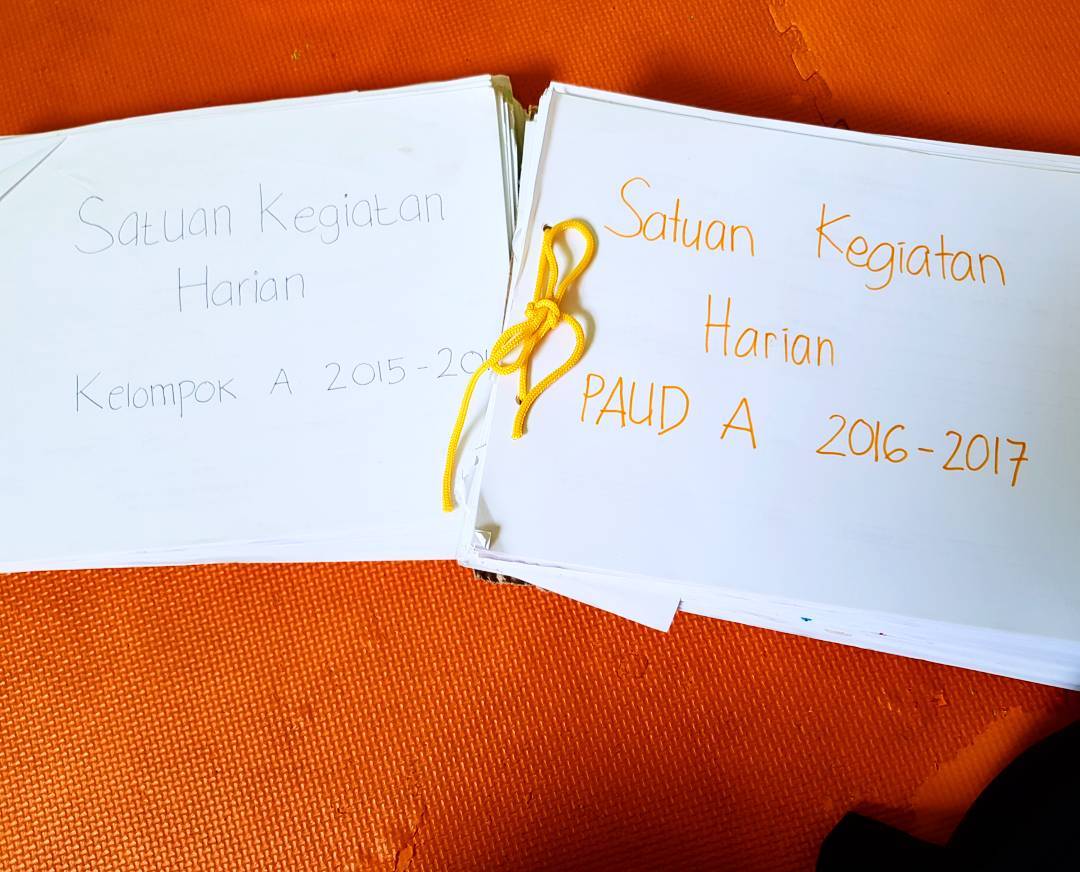 Satuan Kegiatan
Harian
Kelompok A 2015-201
Satuan Kegiatan
Harian
PAUD A 2016-2017